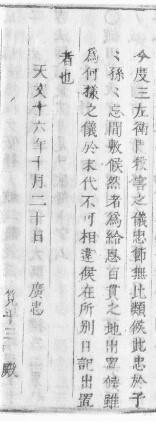 今度三左衛門殺害之儀忠節無比類候此忠於子
〻孫〻忘間敷候然者為給恩百貫之地出置候雖
為何樣之儀於末代不可相違候在所別日記出置
者也
天文十六年十月二十日　廣忠
筧平三　殿